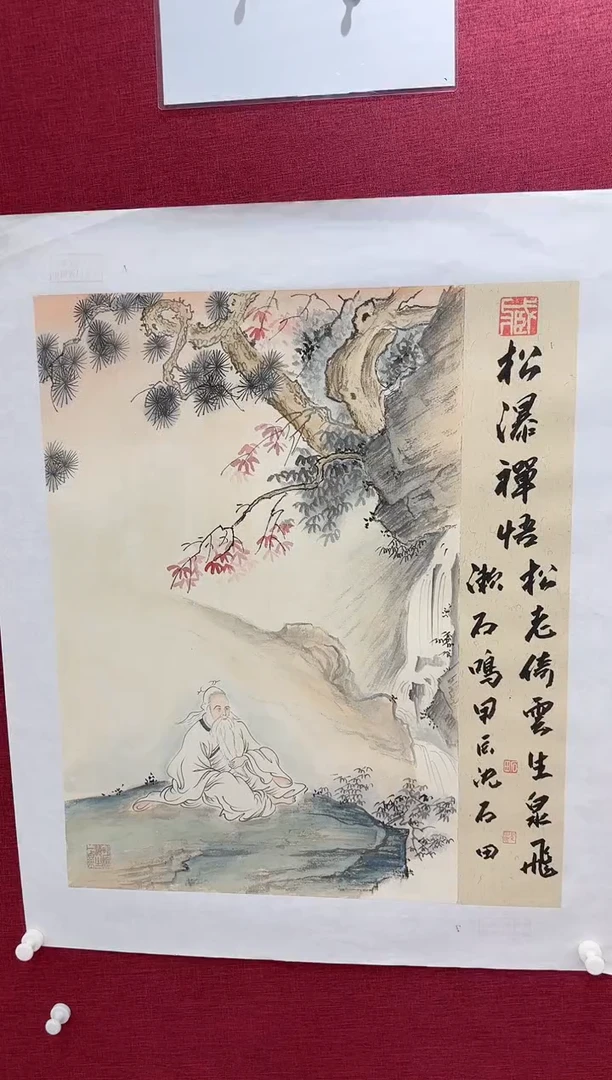 松瀑禪悟
松老倚雲生泉飛
漱石鳴甲辰沈石田